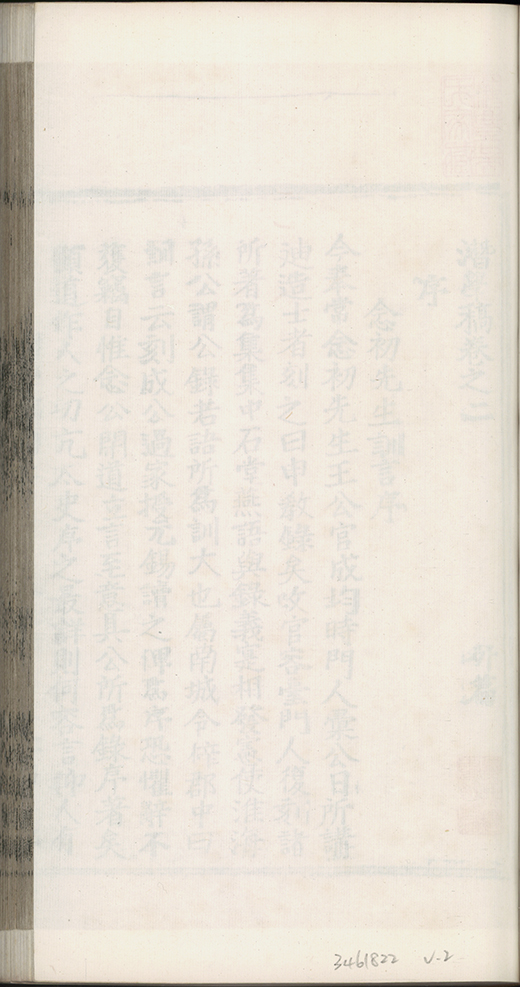 潛學稿卷之二
序
念初先生訓言序
今奉常念初先生王公官成均時門人彙公日所講
迪造士者刻之曰申敎錄矣改官容臺門人復刻諸
所著爲集集中石堂燕語與錄義定相發憲使淮海
孫公謂公錄若語所爲訓大也屬南城令 郡中曰
訓言云刻成公過家授元錫讀之俾爲序恐懼辭不
獲竊自惟念公明道立言至意具公所爲錄序著矣
顯道作人之功 太史序之最詳則何容言 人有
3461822 v.2